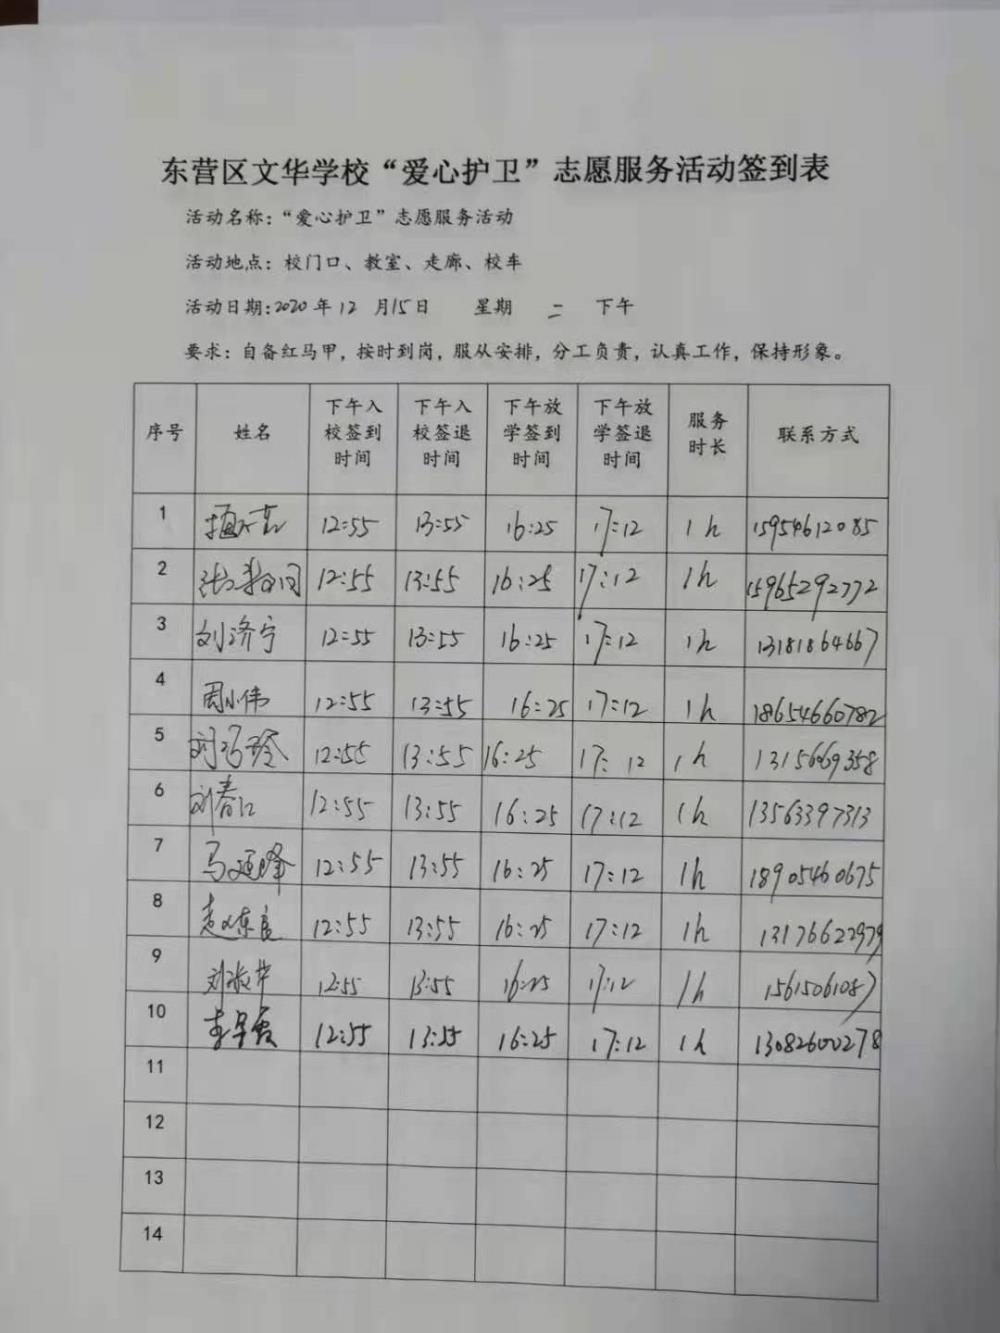 东营区文华学校“爱心护卫”志愿服务活动签到表
活动名称：“爱心护卫”志愿服务活动
活动地点：校门口、教室、走廊、校车
活动日期：2020年12月15日 星期二 下午
要求：自备红马甲，按时到岗，服从安排，分工负责，认真工作，保持形象。
序号 姓名 下午入校签到时间 下午入校签退时间 下午放学签到时间 下午放学签退时间 服务时长 联系方式
1 12:55 13:55 16:25 17:12 1h 15954612085
2 12:55 13:55 16:25 17:12 1h 15965292772
3 刘济宁 12:55 13:55 16:25 17:12 1h 13181864667
4 周小伟 12:55 13:55 16:25 17:12 1h 18654660782
5 12:55 13:55 16:25 17:12 1h
6 刘春江 12:55 13:55 16:25 17:12 1h 13563397313
7 马延峰 12:55 13:55 16:25 17:12 1h 18905460675
8 赵东良 12:55 13:55 16:25 17:12 1h 13176622979
9 刘淑华 12:55 13:55 16:25 17:12 1h 15615061087
10 李早霞 12:55 13:55 16:25 17:12 1h 13082600278
11
12
13
14